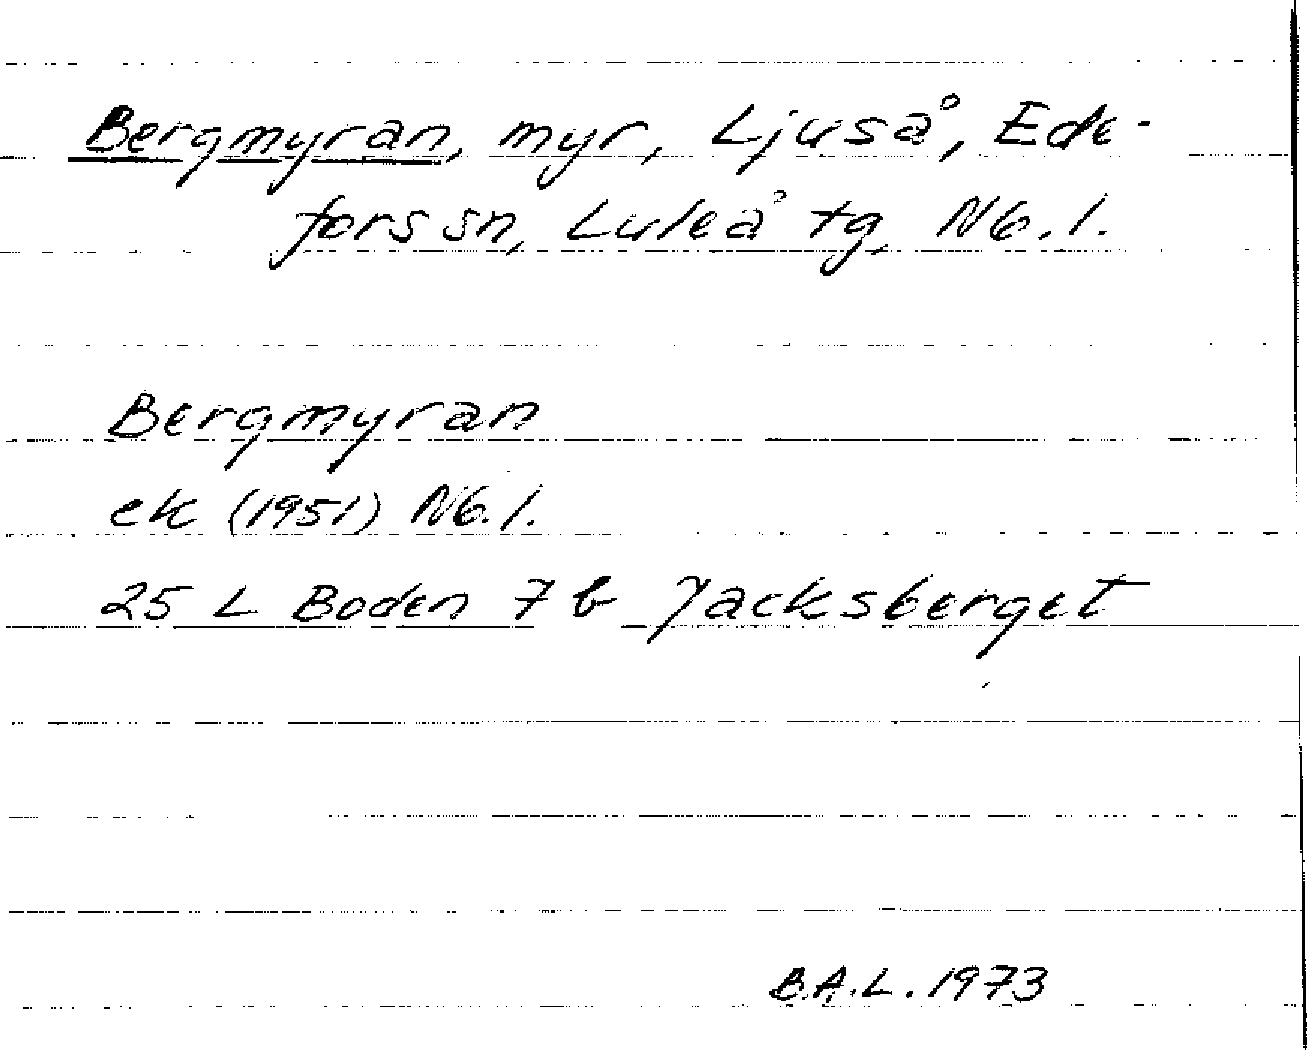 Bergmyran, myr, Ljuså, Ede-
fors sn, Luleå tg, Nb. l.
Bergmyran
ek (1951) Nb. l.
25 L Boden 7 b Jacksberget
B.A.L. 1973